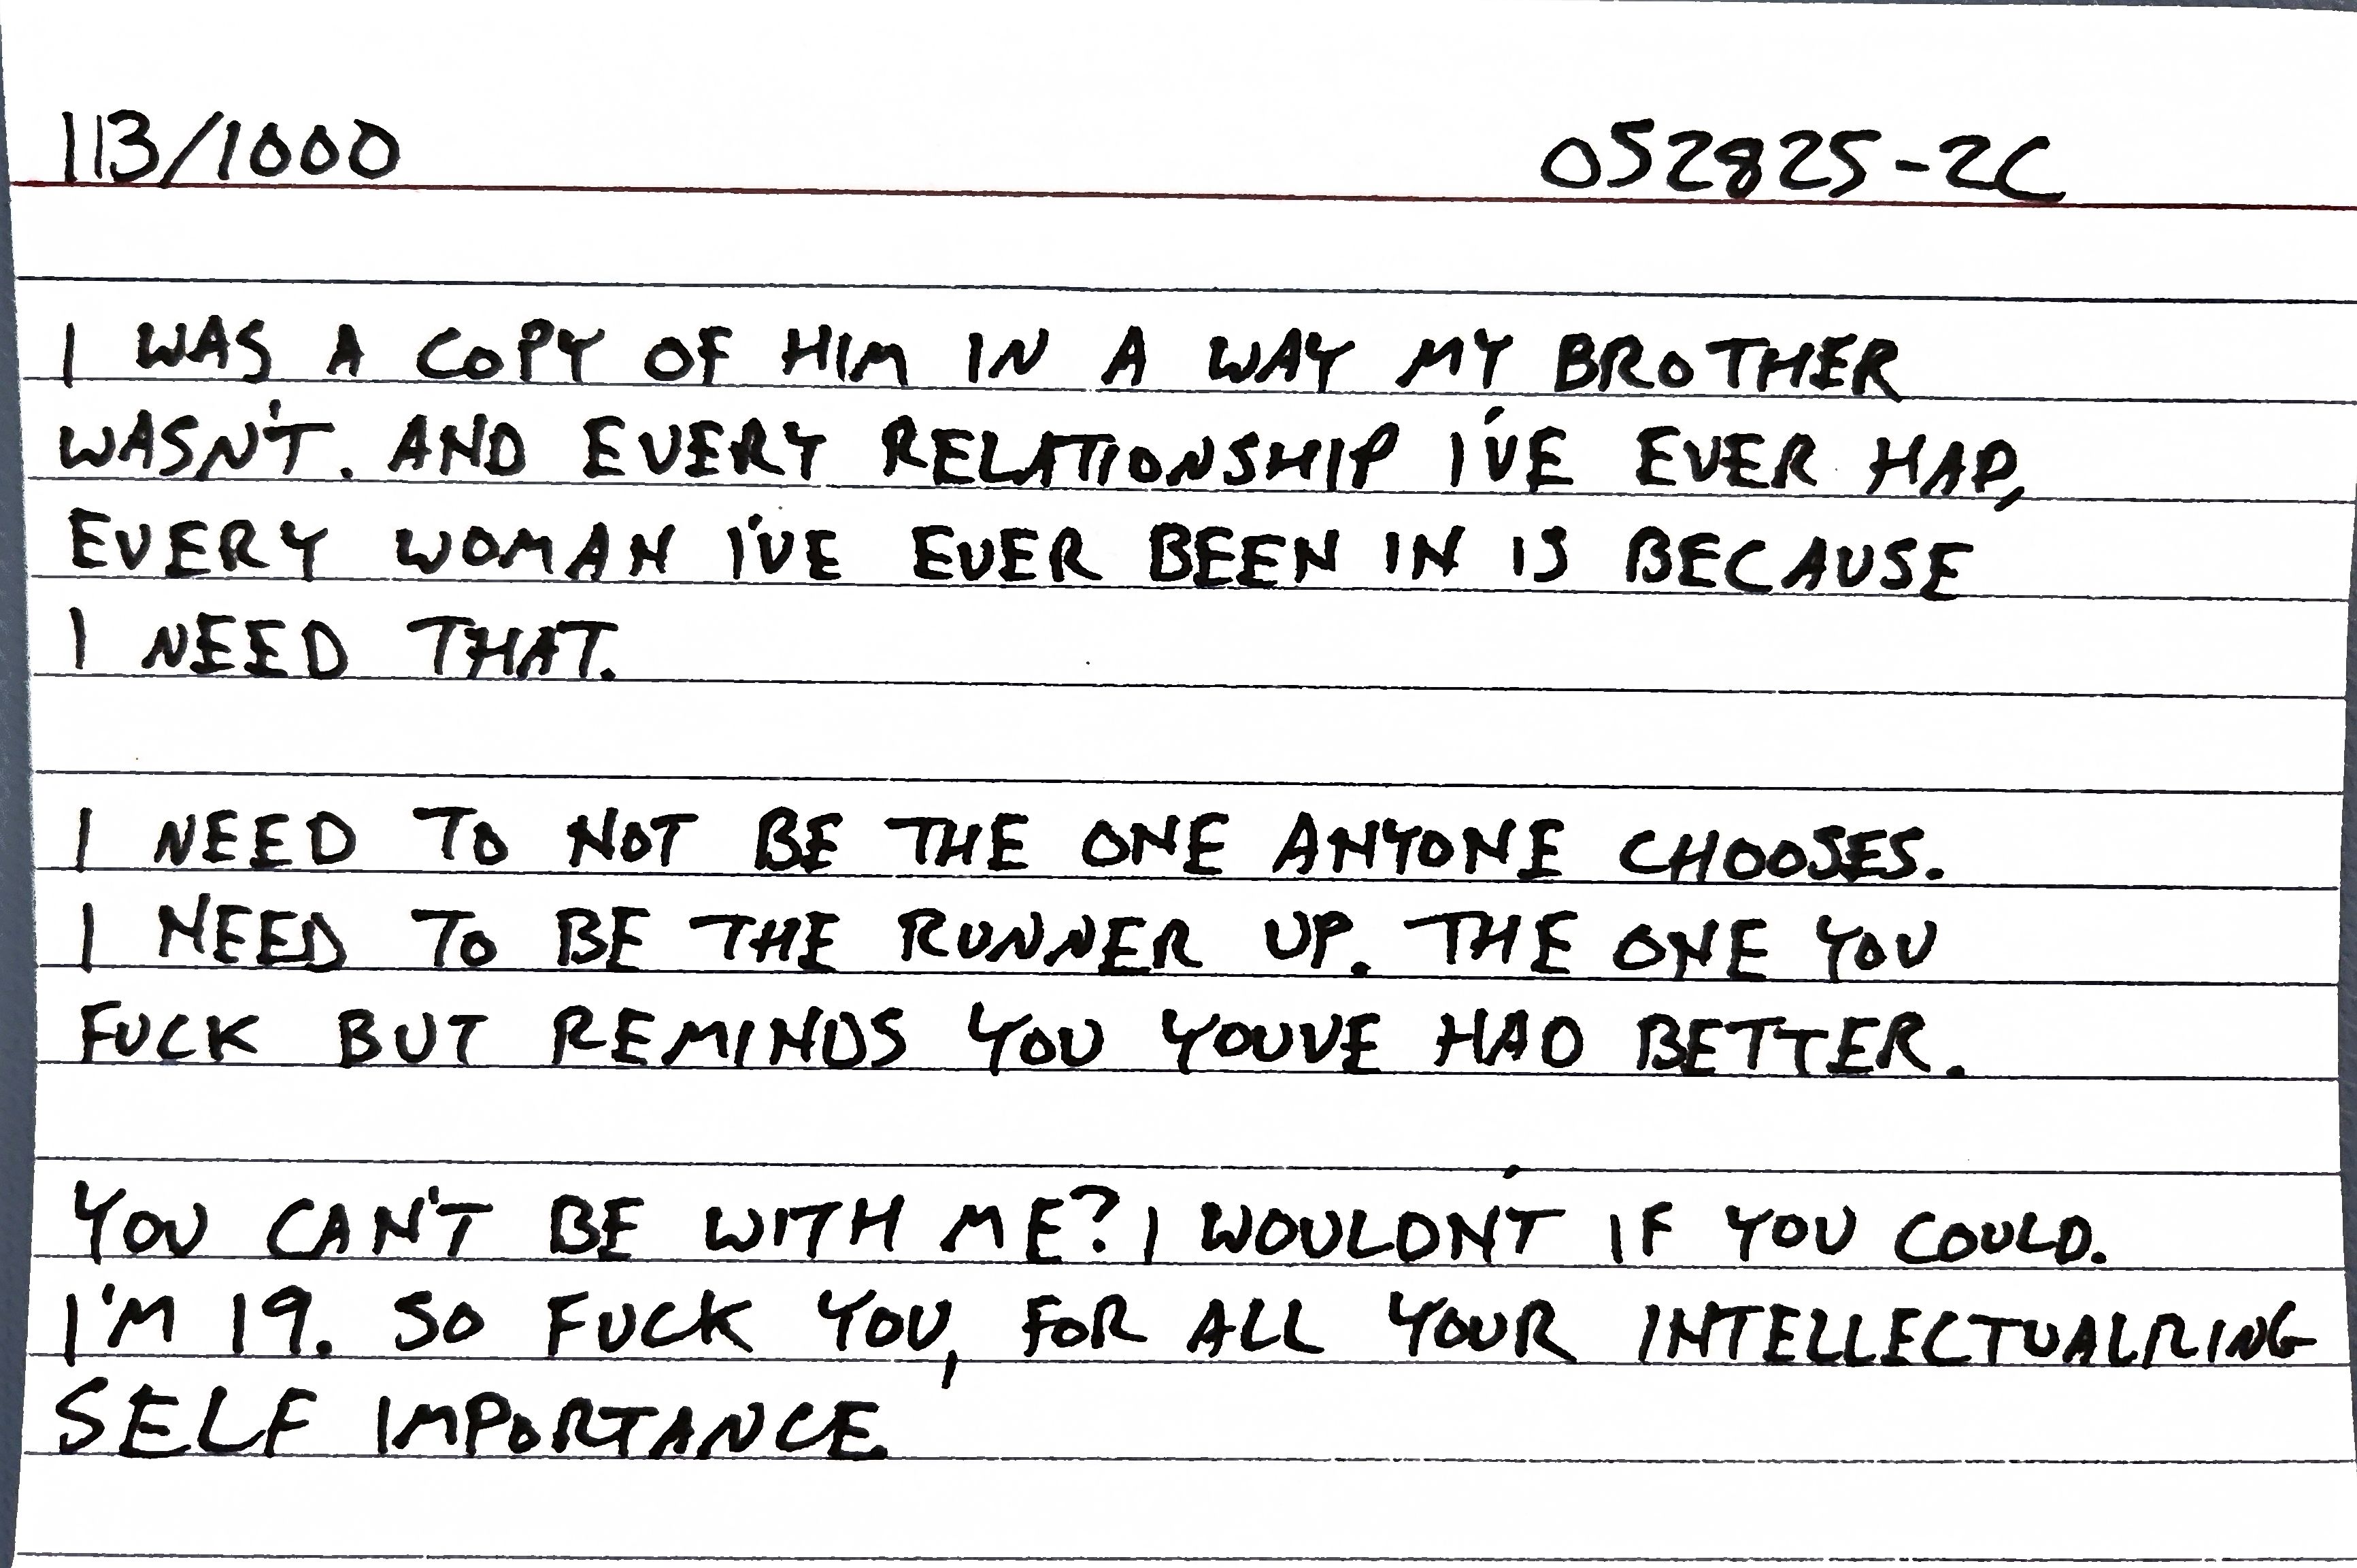 113/1000 052825-2C
I WAS A COPY OF HIM IN A WAY MY BROTHER
WASN'T. AND EVERY RELATIONSHIP I'VE EVER HAD,
EVERY WOMAN I'VE EVER BEEN IN IS BECAUSE
I NEED THAT.
I NEED TO NOT BE THE ONE ANYONE CHOOSES.
I NEED TO BE THE RUNNER UP. THE ONE YOU
FUCK BUT REMINDS YOU YOUVE HAD BETTER.
YOU CAN'T BE WITH ME? I WOULDN'T IF YOU COULD.
I'M 19. SO FUCK YOU, FOR ALL YOUR INTELLECTUALRING
SELF IMPORTANCE.